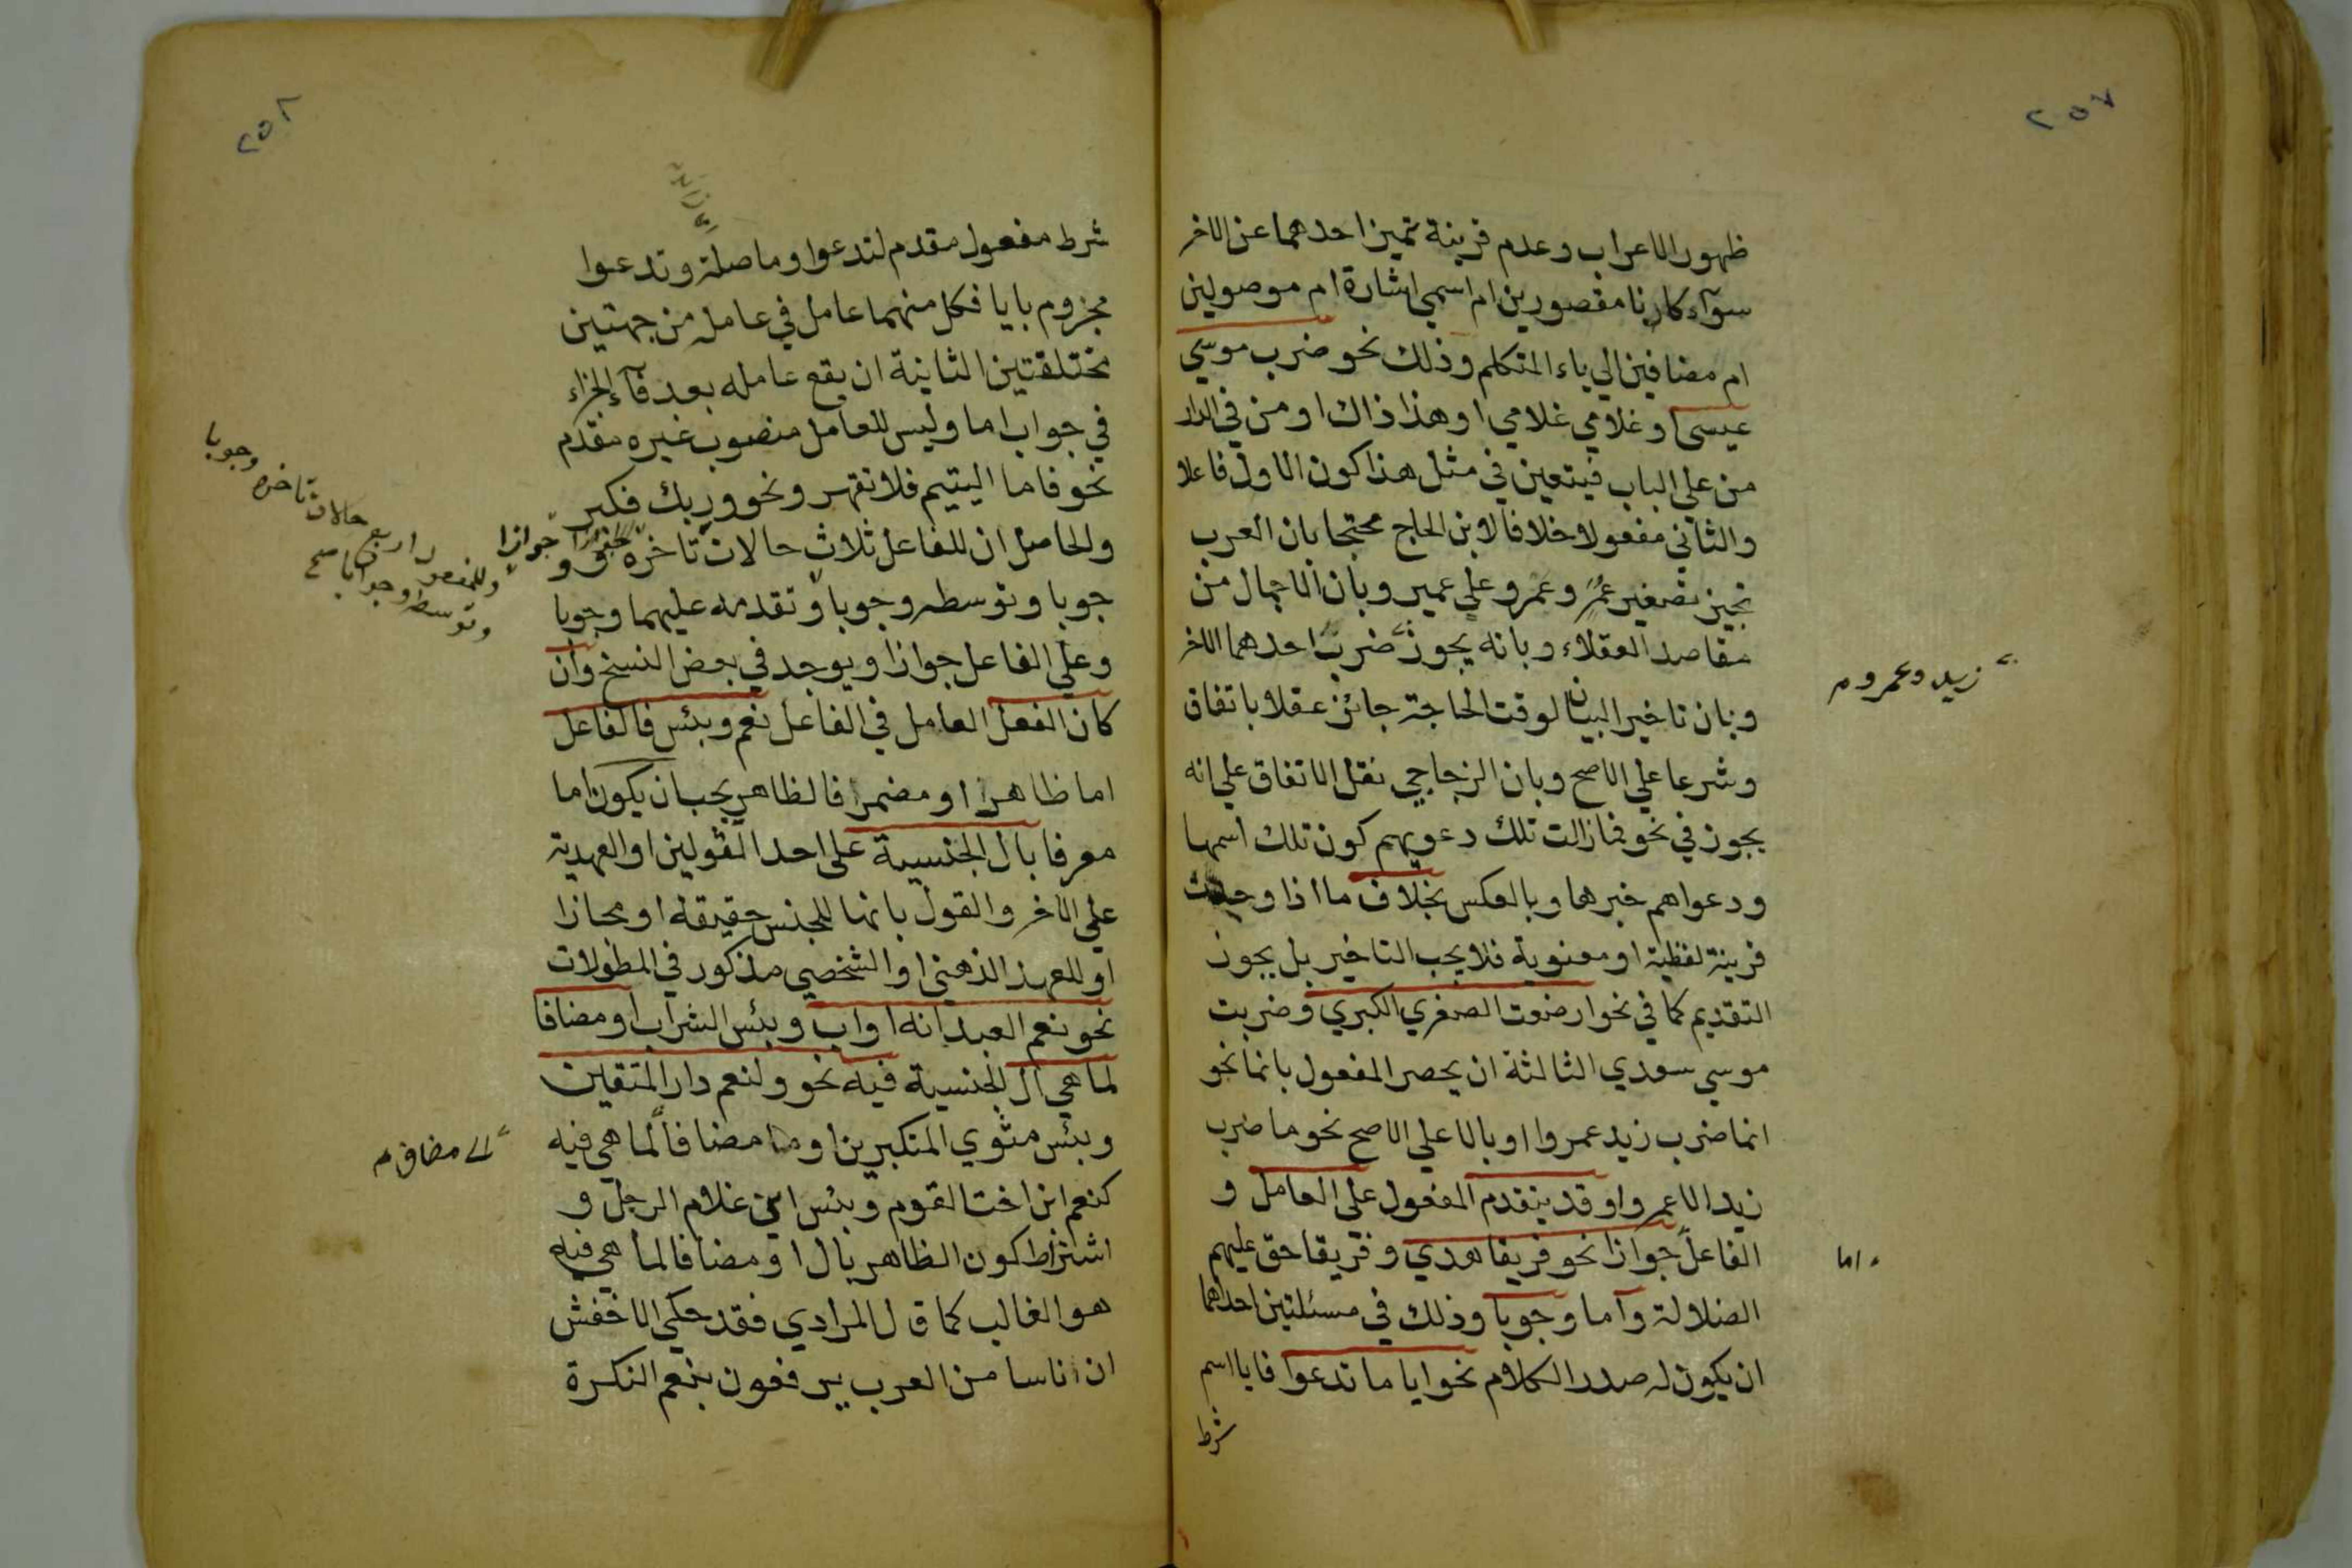 ٢٥٧
ظهور الاعراب وعدم قرينة تميز احدهما عن الاخر
سوآء كانا مقصورين ام اسمي اشارة ام موصولين
ام مضافين الي ياء المتكلم وذلك نحو ضرب موسي
عيسى وغلامي غلامي او هذا ذاك او من في الدار
من علي الباب فيتعين في مثل هذا كون الاول فاعلا
والثاني مفعولا خلافا لابن الحاج محتجا بان العرب
تجيز تصغير عمر وعمرو علي عمير وبان الاجمال من
مقاصد العقلاء وبانه يجوز ضرب احدهما الاخر
زيد وعمرو م
وبان تاخير البيان لوقت الحاجة جائز عقلا باتفاق
وشرعا علي الاصح وبان الزجاجي نقل الاتفاق علي انه
يجوز في نحو فما زالت تلك دعويهم كون تلك اسمها
ودعواهم خبرها وبالعكس بخلاف ما اذا وجدت
قرينة لفظية او معنوية فلا يجب التاخير بل يجوز
التقديم كما في نحو ارضعت الصغري الكبري وضربت
موسي سعدي الثالثة ان يحصر المفعول بانما نحو
انما ضرب زيد عمروا او بالا علي الاصح نحو ما ضرب
زيد الا عمروا وقد يتقدم المفعول علي العامل و
الفاعل جوازا نحو فريقا هدي وفريقا حق عليهم
اما
الضلالة وآما وجوبا وذلك في مسئلتين احداهما
ان يكون له صدر الكلام نحو ايا ما تدعوا فايا اسم
شرط
٢٥٨
شرط مفعول مقدم لتدعوا وما صلة وتدعوا
مجزوم بايا فكل منهما عامل في عامله من جهتين
مختلفتين الثانية ان يقع عامله بعد فآء الجزاء
في جواب اما وليس للعامل منصوب غيره مقدم
نحو فاما اليتيم فلا تقهر ونحو وربك فكبر
والحاصل ان للفاعل ثلاث حالات تاخره و
جوازا
وللمفعول اربع حالات تاخره وجوبا
وتوسطه وجوبا صح
جوبا وتوسطه وجوبا وتقدمه عليهما وجوبا
وعلي الفاعل جوازا ويوجد في بعض النسخ وان
كان الفعل العامل في الفاعل نعم وبئس فالفاعل
اما ظاهرا او مضمرا فالظاهر يجب ان يكون اما
معرفا بال الجنسية على احد القولين او العهدية
علي الاخر والقول بانها للجنس حقيقة او مجازا
او للعهد الذهني او الشخصي مذكور في المطولات
نحو نعم العبد انه اواب وبئس الشراب او مضافا
لما هي ال الجنسية فيه نحو ولنعم دار المتقين
وبئس مثوي المتكبرين او مضافا لما هي فيه
الى مضاف م
كنعم ابن اخت القوم وبئس ابن غلام الرجل و
اشتراط كون الظاهر بال او مضافا لما هي فيه
هو الغالب كما قال المرادي فقد حكي الاخفش
ان اناسا من العرب يرفعون بنعم النكرة